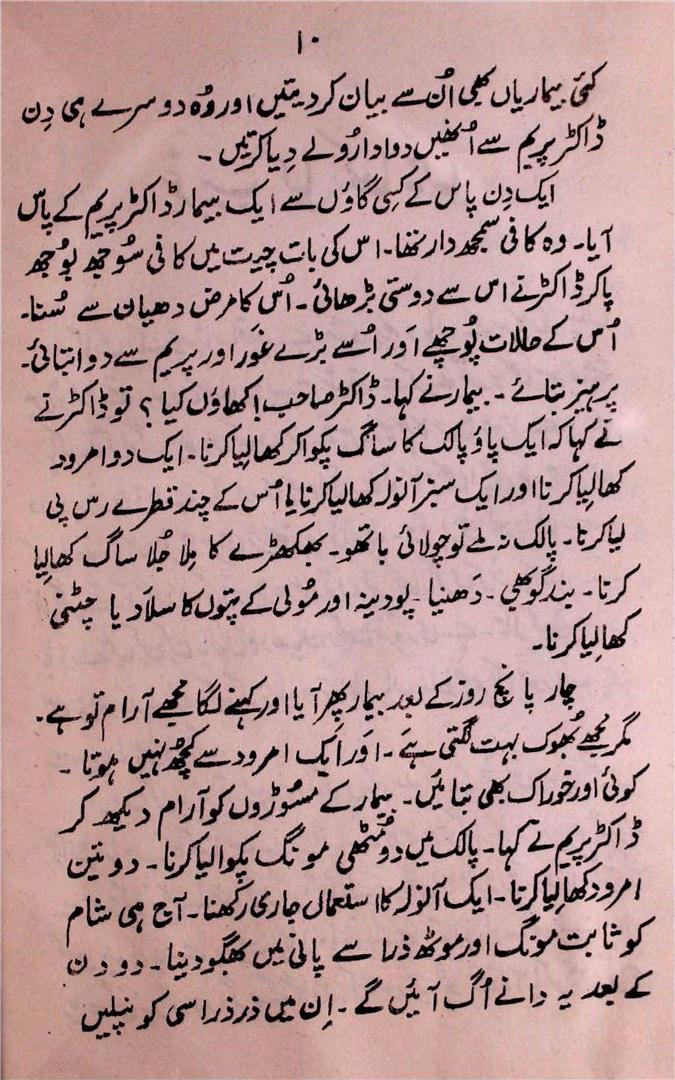 ۱۰
کئی بیماریاں بھی اُن سے بیان کر دیتیں اور وُہ دوسرے ہی دِن
ڈاکٹر پریم سے اُنھیں دوا دارُو لے دِیا کرتیں ۔
ایک دِن پاس کے کسِی گاؤں سے ایک بیمار ڈاکٹر پریم کے پاس
آیا۔ وہ کافی سمجھ دار تھا۔ اس کی بات چیت میں کافی سُوجھ بُوجھ
پاکر ڈاکٹر نے اس سے دوستی بڑھائی ۔ اُس کا مرض دھیان سے سُنا۔
اُس کے حالات پُوچھے اَور اُسے بڑے غَور اور پریم سے دوا بتائی۔
پرہیز بتائے ۔ بیمار نے کہا۔ ڈاکٹر صاحب! کھاؤں کیا ؟ تو ڈاکٹر نے
نے کہا کہ ایک پاؤ پالک کا ساگ پکوا کر کھا لیا کرنا۔ ایک دو امرود
کھا لِیا کرنا اور ایک سبز آنولہ کھا لیا کرنا یا اُس کے چند قطرے رس پی
لیا کرنا۔ پالک نہ ملے تو چولائی باتھو۔ بھکھڑے کا مِلا جُلا ساگ کھا لِیا
کرنا ۔ بند گوبھی ۔ دَھنیا ۔ پودینہ اور مُولی کے پتوں کا سلاَد یا چٹنی
کھا لِیا کرنا۔
چار پانچ روز کے بعد بیمار پھِر آیا اور کہنے لگا مجھے آرام تو ہے۔
مگر مجھے بُھوک بہت لگتی ہے ۔ اَور ایک امرود سے کُچھ نہیں ہوتا ۔
کوئی اور خوراک بھی بتائیں۔ بیمار کے مسُوڑوں کو آرام دیکھ کر
ڈاکٹر پریم نے کہا۔ پالک میں دو مُٹھی مونگ پکوا لیا کرنا۔ دو تین
امرود کھا لیا کرنا۔ ایک آنولہ کا استعمال جاری رکھنا۔ آج ہی شام
کو ثابت مونگ اور موٹھ ذرا سے پانی میں بھگو دینا۔ دو دن
کے بعد یہ دانے اُگ آئیں گے ۔ اِن میں ذر ذرا سی کونپلیں